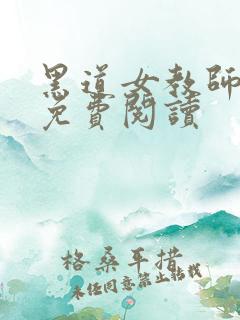 黑道女教師
免費閱讀
格桑平措
未經同意禁止轉載